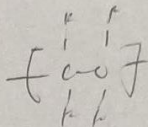 F F
[C-C]
F F